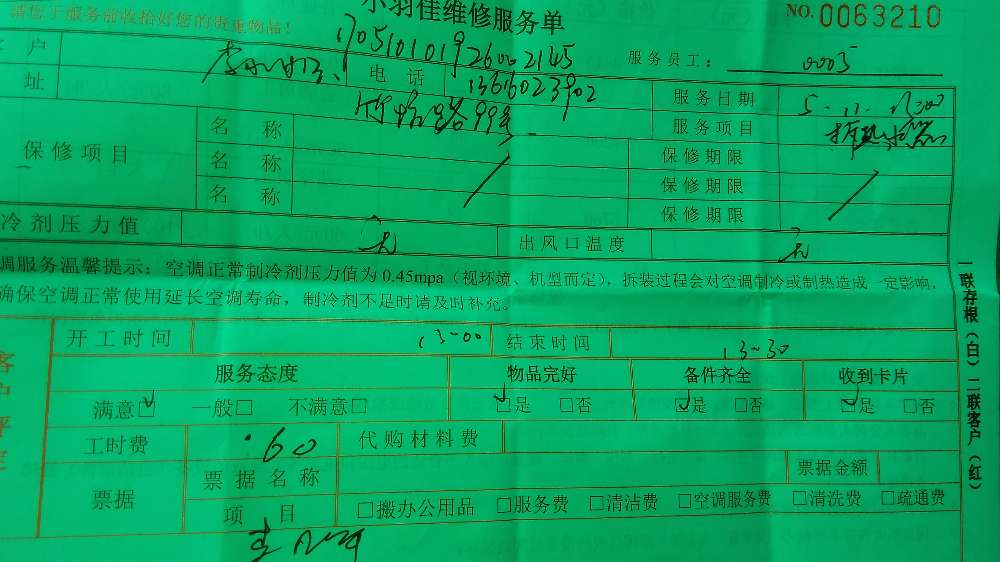 请您于服务前收拾好您的贵重物品！
羽佳维修服务单
NO.0063210
170510101926002145
服务员工： 0005
户
电话 13616023902
服务日期 5.11.
址
99号
服务项目
保修项目
名称
名称 保修期限
名称 保修期限
保修期限
冷剂压力值 无 出风口温度 无
调服务温馨提示：空调正常制冷剂压力值为 0.45mpa（视环境、机型而定），拆装过程会对空调制冷或制热造成一定影响，
确保空调正常使用延长空调寿命，制冷剂不足时请及时补充。
开工时间 13-00 结束时间 13-30
客户评定
服务态度 物品完好 备件齐全 收到卡片
满意☑ 一般□ 不满意□ ☑是 □否 ☑是 □否 ☑是 □否
工时费 60 代购材料费
票据 票据名称 票据金额
项目 □搬办公用品 □服务费 □清洁费 □空调服务费 □清洗费 □疏通费
一联存根（白）二联客户（红）